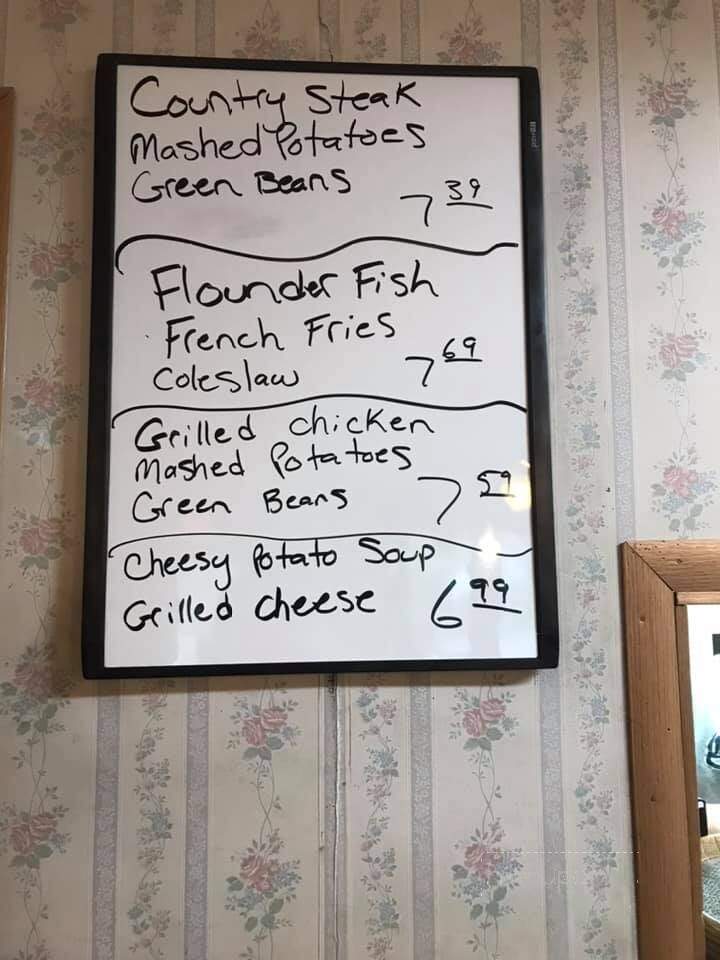 Country Steak
Mashed Potatoes
Green Beans
7 39
Flounder Fish
French Fries
Coleslaw
7 69
Grilled chicken
Mashed Potatoes
Green Beans
7 59
Cheesy Potato Soup
Grilled cheese
6 99